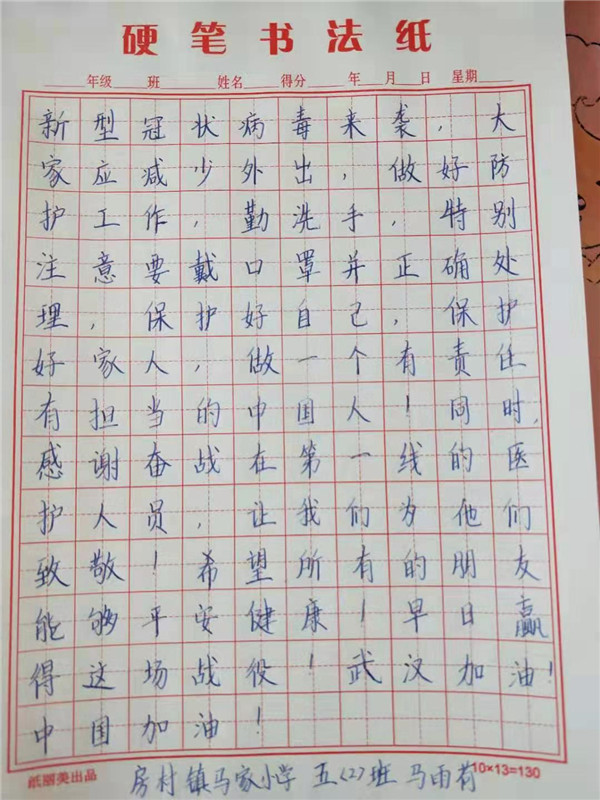 硬笔书法纸
年级 班 姓名 得分 年 月 日 星期
新型冠状病毒来袭，大
家应减少外出，做好防
护工作，勤洗手，特别
注意要戴口罩并正确处
理，保护好自己，保护
好家人，做一个有责任
有担当的中国人！同时，
感谢奋战在第一线的医
护人员，让我们为他们
致敬！希望所有的朋友
能够平安健康！早日赢
得这场战役！武汉加油！
中国加油！
纸丽美出品 10×13=130
房村镇马家小学 五(2)班 马雨荷